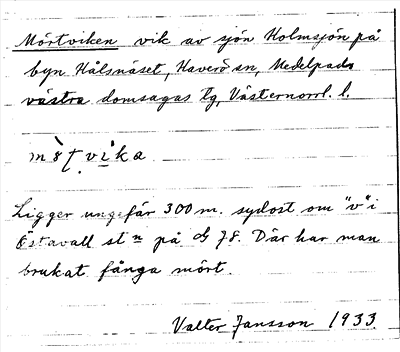 Mörtviken vik av sjön Holmsjön på
byn Hålsnäset, Haverö sn, Medelpads
västra domsagas tg, Västernorrl. l.
Ligger ungefär 300 m. sydost om "v" i
Östavall stn på G 78. Där har man
brukat fånga mört.
Valter Jansson 1933